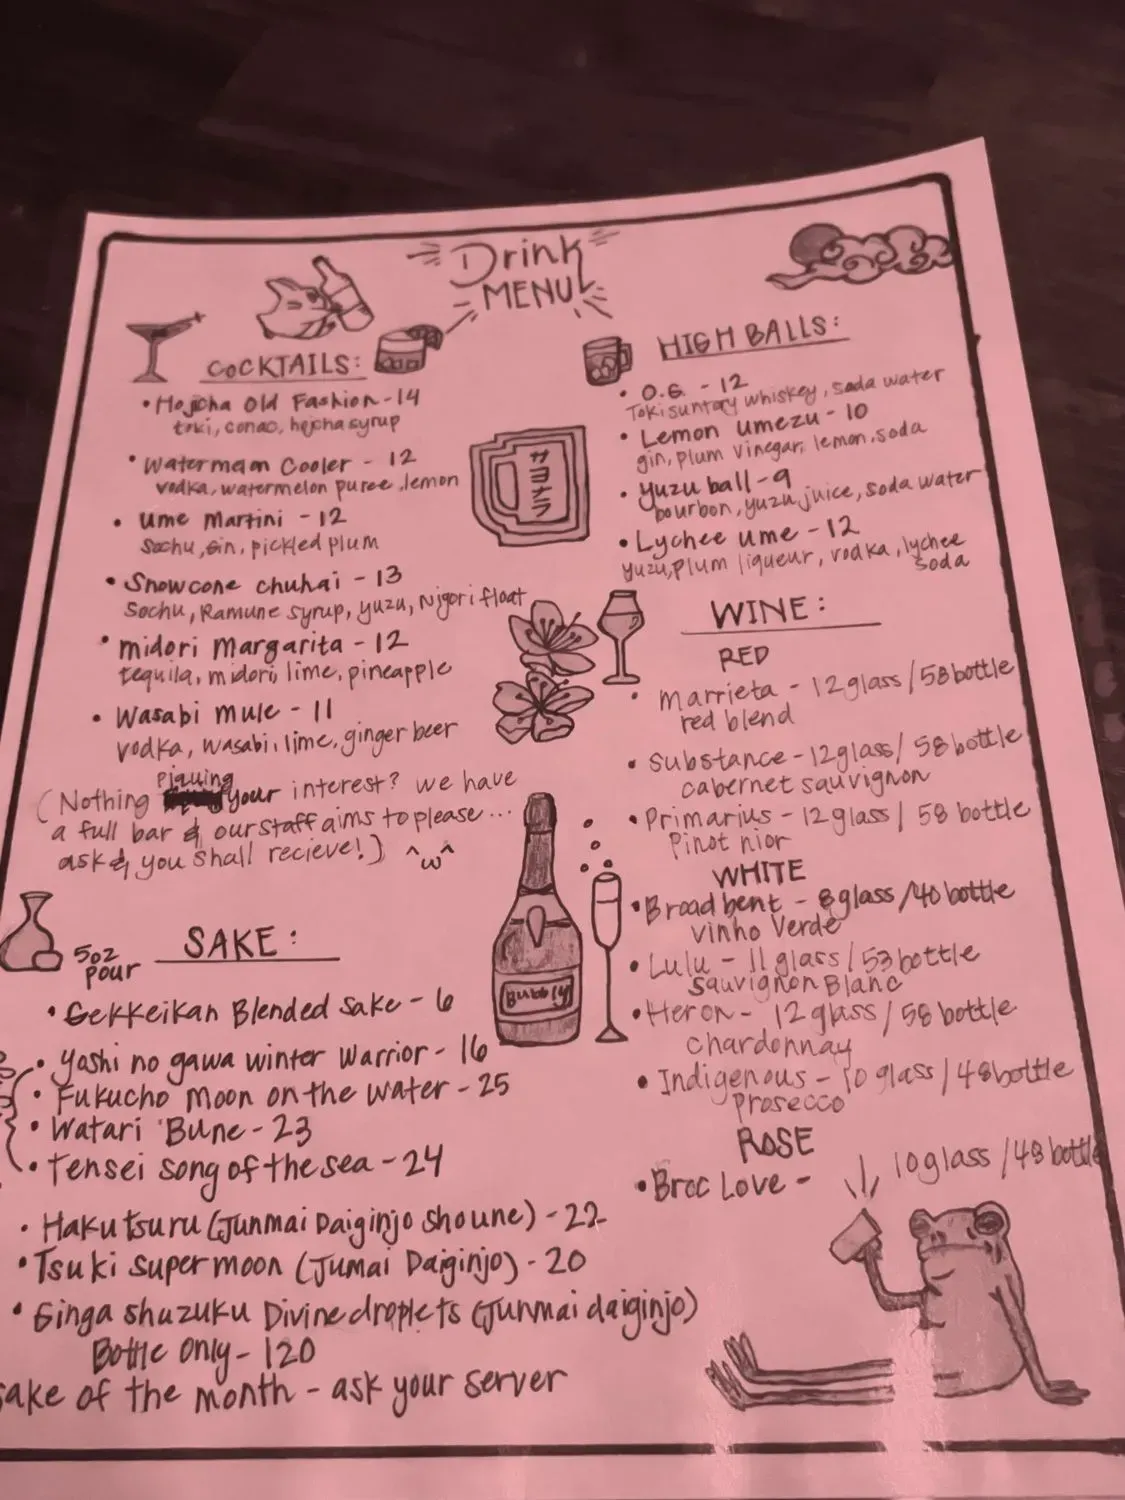 Drink
MENU
COCKTAILS:
• Hojicha Old Fashion - 14
toki, conao, hojcha syrup
• Watermelon Cooler - 12
vodka, watermelon puree, lemon
• ume Martini - 12
Sochu, Gin, pickled plum
• Snowcone chuhai - 13
Sochu, Ramune syrup, yuzu, Nigori float
• midori Margarita - 12
tequila, midori, lime, pineapple
• Wasabi mule - 11
vodka, wasabi, lime, ginger beer
(Nothing piquing your interest? we have
a full bar & our staff aims to please...
ask & you shall recieve!) ^ω^
サヨナラ
5oz
pour
SAKE:
• Gekkeikan Blended Sake - 6
• Yoshi no gawa winter Warrior - 16
• Fukucho Moon on the water - 25
• Watari Bune - 23
• Tensei song of the sea - 24
• Hakutsuru (Junmai Daiginjo Shoune) - 22
• Tsuki supermoon (Jumai Daiginjo) - 20
• Ginga shuzuku Divine droplets (Junmai daiginjo)
Bottle Only - 120
sake of the month - ask your server
Bubbly
HIGH BALLS:
• O.G. - 12
Toki suntory whiskey, soda water
• Lemon umezu - 10
gin, plum vinegar, lemon, soda
• Yuzu ball - 9
bourbon, yuzu juice, soda water
• Lychee ume - 12
yuzu, plum liqueur, vodka, lychee
soda
WINE:
RED
• Marrieta - 12 glass / 58 bottle
red blend
• Substance - 12 glass / 58 bottle
cabernet sauvignon
• Primarius - 12 glass / 58 bottle
Pinot nior
WHITE
• Broadbent - 8 glass / 40 bottle
vinho Verde
• Lulu - 11 glass / 53 bottle
Sauvignon Blanc
• Heron - 12 glass / 58 bottle
chardonnay
• Indigenous - 10 glass / 48 bottle
prosecco
ROSE
• Broc Love - 10 glass / 48 bottle